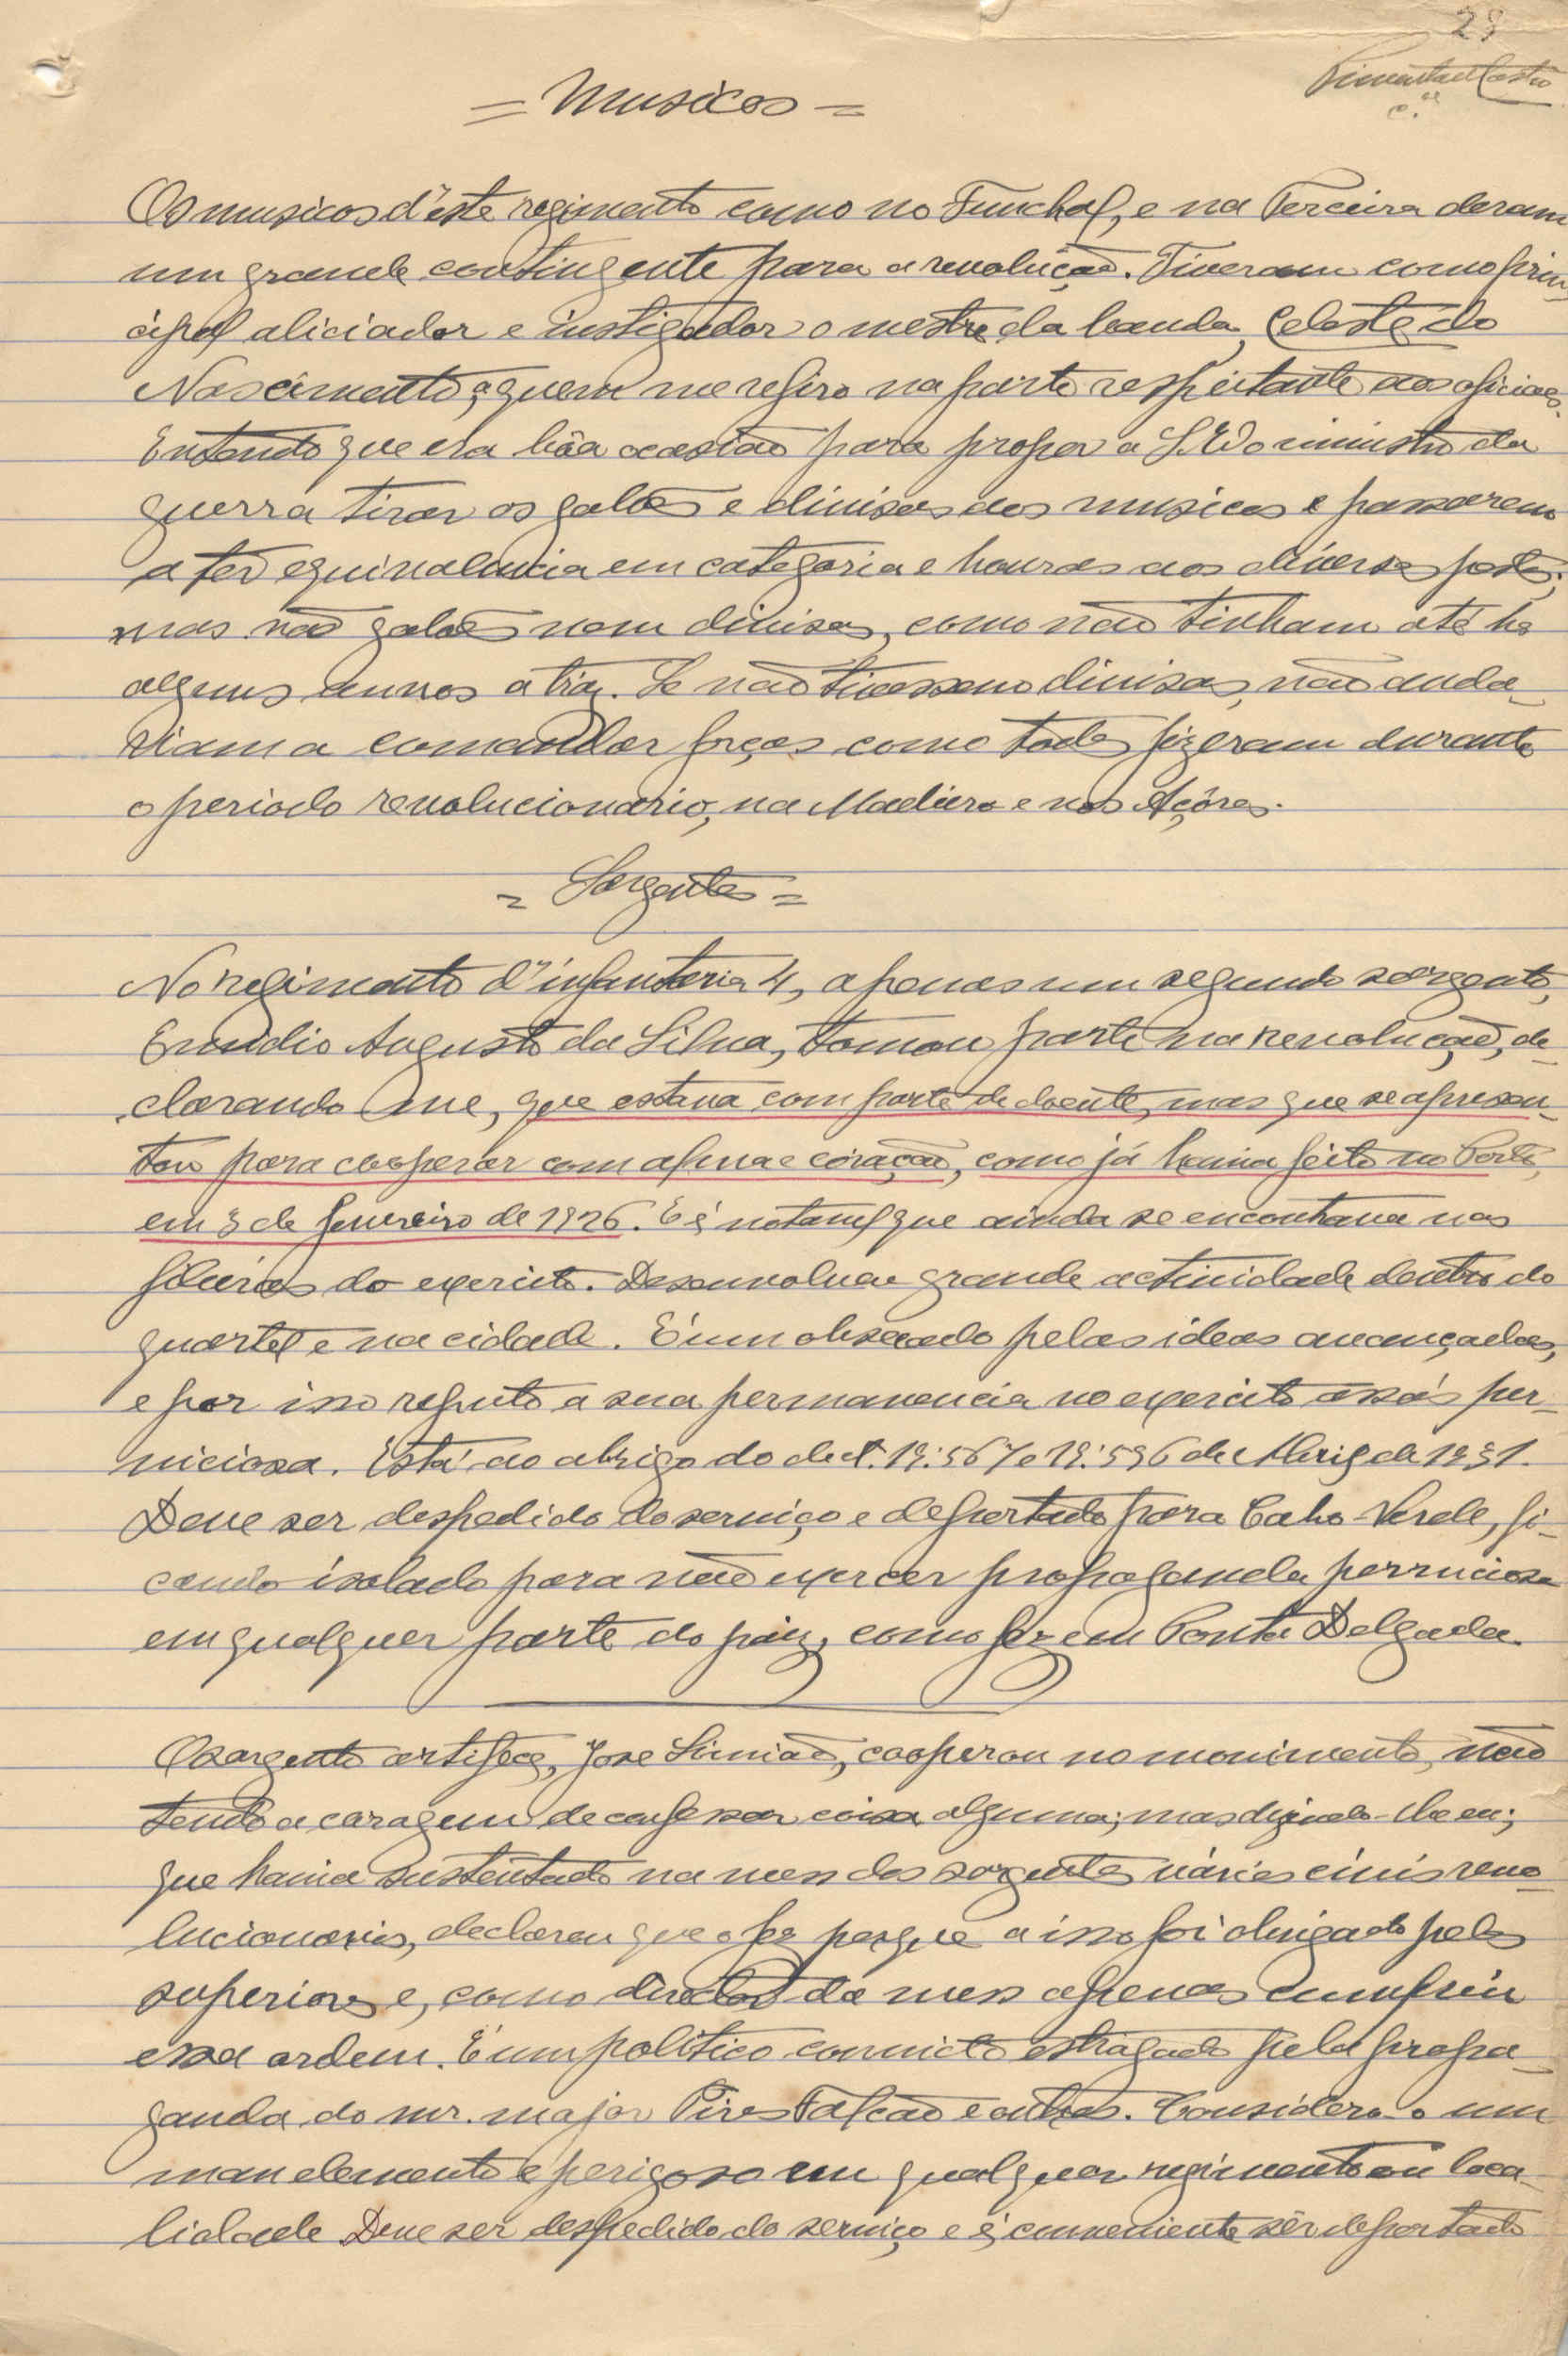 28
Pimenta de Castro
c.el
= Musicos =
Os musicos d'êste regimento como no Funchal, e na Terceira deram
um grande contingente para a revolução. Tiveram como prin-
cipal aliciador e instigador o mestre da banda, Celeste do
Nascimento, a quem me refiro na parte respeitante aos oficiaes.
Entendo que era bôa ocasião para propor a S. Exª o ministro da
guerra tirar os galões e divisas aos musicos e passarem
a ter equivalencia em categoria e honras aos diversos postos;
mas não galões nem divisas, como não tinham até ha
alguns annos atraz. Se não tivessem divisas, não anda-
riam a comandar forças como todos fizeram durante
o periodo revolucionario, na Madeira e nos Açôres.
= Sargentos =
No regimento d'infanteria 4, apenas um segundo sargento,
Emidio Augusto da Silva, tomou parte na revolução, de-
clarando-me, que estava com parte de doente, mas que se apresen-
tou para cooperar com alma e coração, como já havia feito no Porto,
em 3 de fevereiro de 1926. E é notavel que ainda se encontrava nas
fileiras do exercito. Desenvolveu grande actividade dentro do
quartel e na cidade. É um obsecado pelas ideas avançadas,
e por isso reputo a sua permanencia no exercito assás per-
niciosa. Está ao abrigo do dect. 19:567 e 19:596 de Abril de 1931.
Deve ser despedido do serviço e deportado para Cabo-Verde, fi-
cando isolado para não exercer propaganda perniciosa
em qualquer parte do paiz, como fez em Ponta Delgada.
O sargento artifece, Jose Simião, cooperou no movimento, não
tendo a coragem de confessar coisa alguma; mas dizendo-lhe eu;
que havia sustentado na mess dos sargentos vários civis revo-
lucionarios, declarou que o fez porque a isso foi obrigado pelos
superiores e, como director da mess apenas cumpriu
essa ordem. É um politico convicto estragado pela propa-
ganda do snr. major Pires Falcão e outros. Considero-o um
mau elemento e perigoso em qualquer regimento ou loca-
lidade Deve ser despedido do serviço e é conveniente sêr deportado